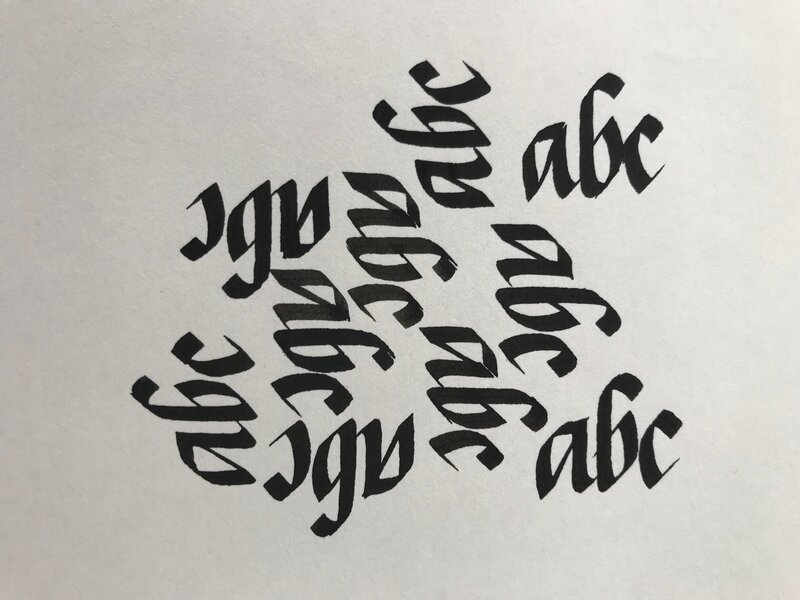 abc
abc
abc
abc
abc
abc
abc
abc
abc
abc